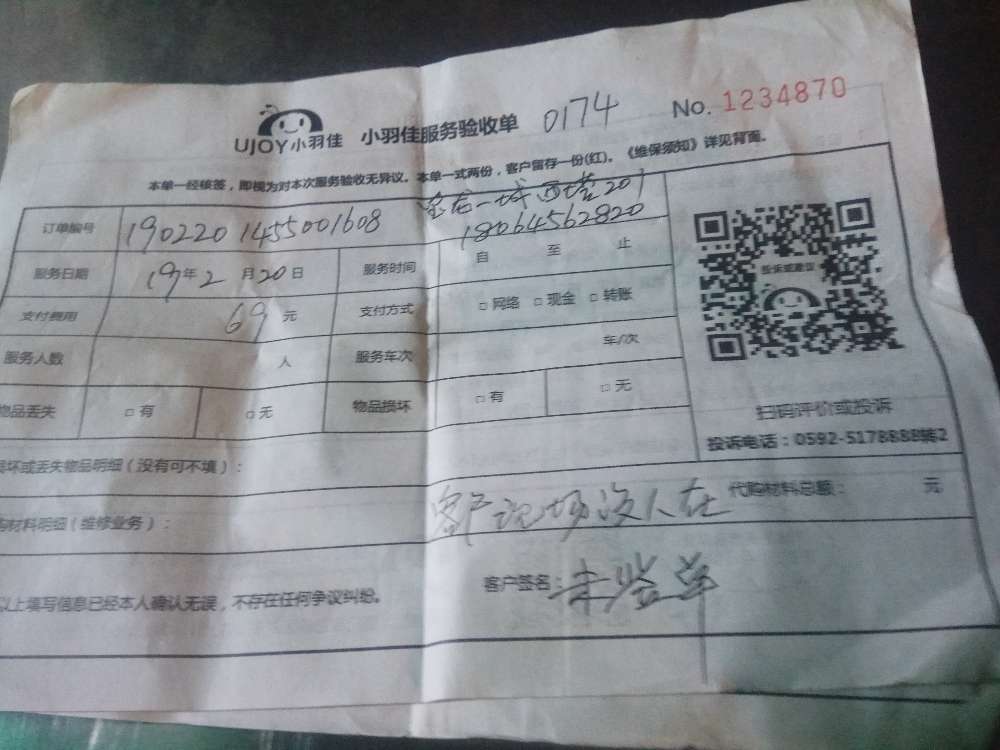 UJOY小羽佳 小羽佳服务验收单 0174 No. 1234870
本单一经核签，即视为对本次服务验收无异议。本单一式两份，客户留存一份(红)。《维保须知》详见背面。
订单编号 190220 1455001608 一城西塔201
18064562820
服务日期 19年2月20日 服务时间 自 至 止
支付费用 69元 支付方式 □网络 □现金 □转账
服务人数 人 服务车次 车/次
物品丢失 □有 □无 物品损坏 □有 □无
投诉或建议
扫码评价或投诉
投诉电话：0592-5178888转2
损坏或丢失物品明细（没有可不填）：
购材料明细（维修业务）： 客户现场没人在 代购材料总额： 元
以上填写信息已经本人确认无误，不存在任何争议纠纷。 客户签名：未签单